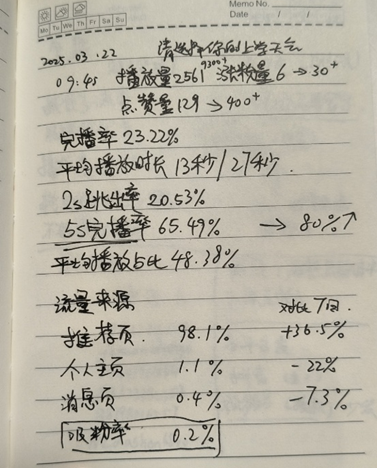 Memo No.
Mo Tu We Th Fr Sa Su
Date / /
2025.03.22 请选择你的上学天气
9300+
09:45 播放量2561 涨粉量6→30+
点赞量129→400+
完播率23.22%
平均播放时长13秒/27秒.
2s跳出率20.53%
5s完播率65.49% →80%↑
平均播放占比48.38%
流量来源 对比7日.
推荐页. 98.1% +36.5%
个人主页 1.1% -22%
消息页 0.4% -7.3%
吸粉率 0.2%